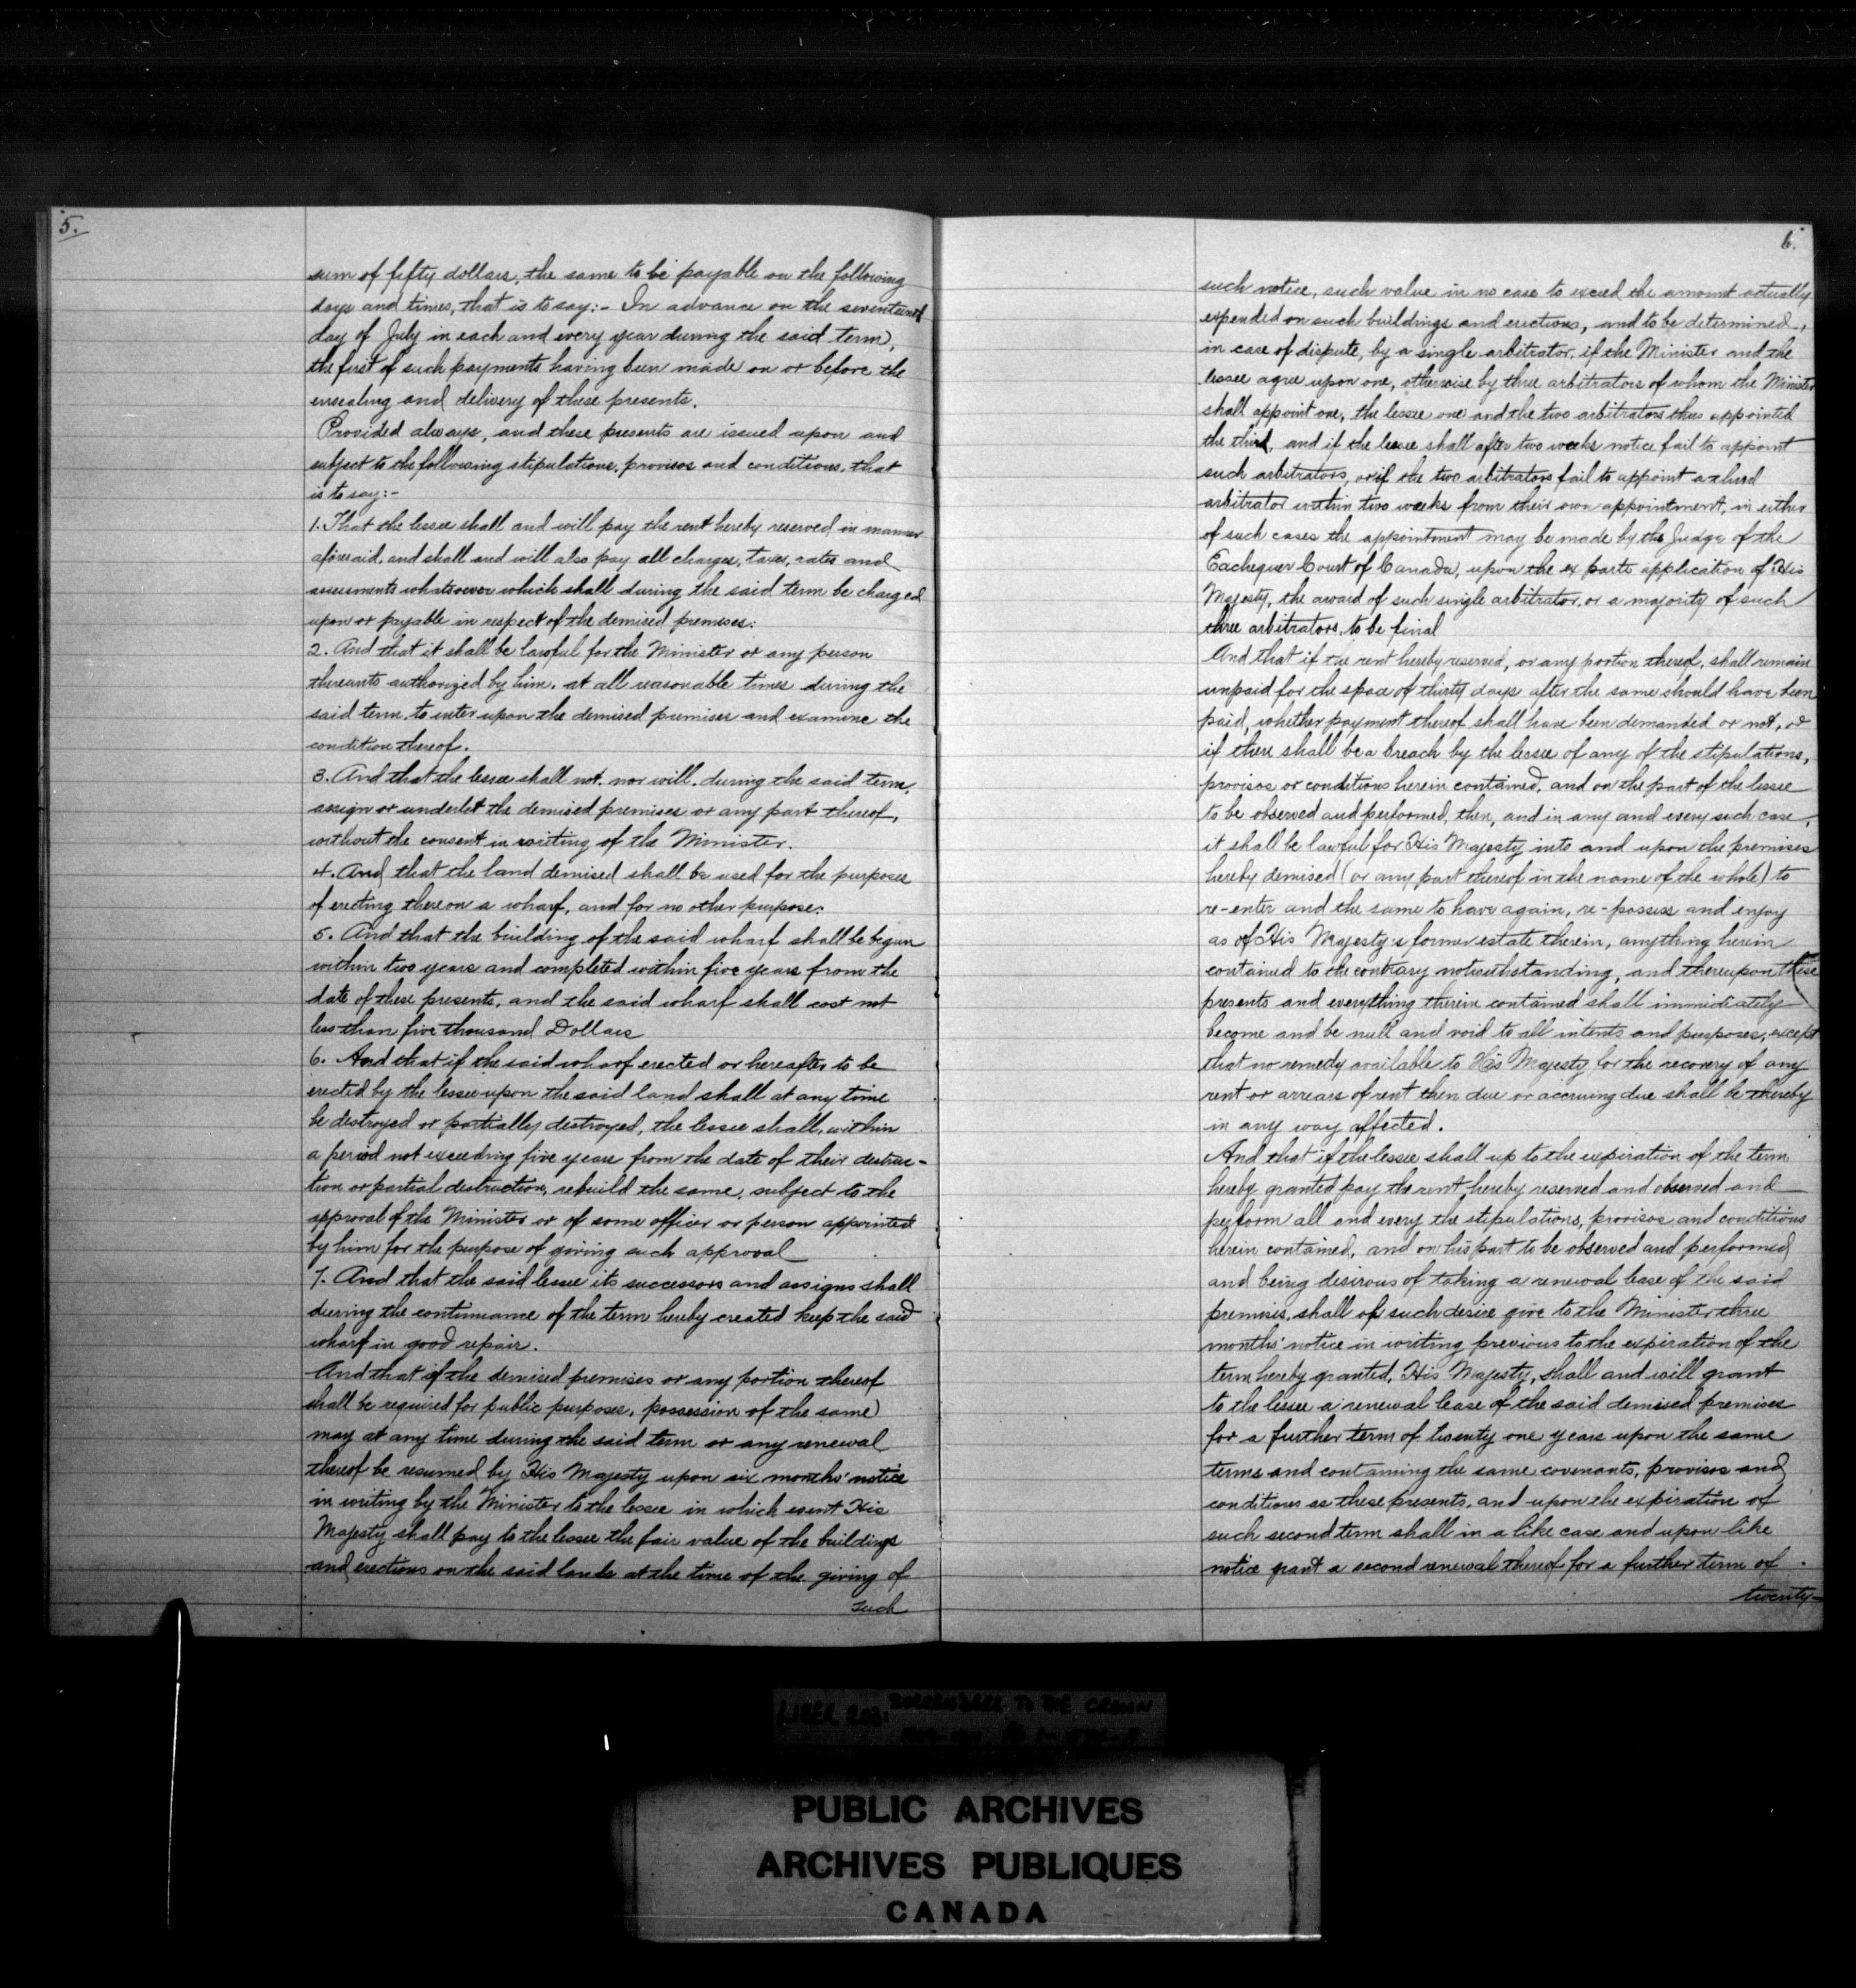 5.
sum of fifty dollars, the same to be payable on the following
days and times, that is to say:- In advance on the seventeenth
day of July in each and every year during the said term,
the first of such payments having been made on or before the
ensealing and delivery of these presents.
Provided always, and these presents are issued upon and
subject to the following stipulations, provisos and conditions, that
is to say:-
1. That the lessee shall and will pay the rent hereby reserved in manner
aforesaid, and shall and will also pay all charges, taxes, rates and
assessments whatsoever which shall during the said term be charged
upon or payable in respect of the demised premises:
2. And that it shall be lawful for the Minister or any person
thereunto authorized by him, at all reasonable times during the
said term, to enter upon the demised premises and examine the
condition thereof.
3. And that the lessee shall not, nor will, during the said term,
assign or underlet the demised premises or any part thereof,
without the consent in writing of the Minister.
4. And that the land demised shall be used for the purposes
of erecting thereon a wharf, and for no other purpose:
5. And that the building of the said wharf shall be begun
within two years and completed within five years from the
date of these presents, and the said wharf shall cost not
less than five thousand Dollars
6. And that if the said wharf erected or hereafter to be
erected by the lessee upon the said land shall at any time
be destroyed or partially destroyed, the lessee shall, within
a period not exceeding five years from the date of their destruc-
tion or partial destruction, rebuild the same, subject to the
approval of the Minister or of some officer or person appointed
by him for the purpose of giving such approval
7. And that the said lessee its successors and assigns shall
during the continuance of the term hereby created keep the said
wharf in good repair.
And that if the demised premises or any portion thereof
shall be required for public purposes, possession of the same
may at any time during the said term or any renewal
thereof be resumed by His Majesty upon six months' notice
in writing by the Minister to the lessee in which event His
Majesty shall pay to the lessee the fair value of the buildings
and erections on the said lands at the time of the giving of
such
6.
such notice, such value in no case to exceed the amount actually
expended on such buildings and erections, and to be determined,
in case of dispute, by a single arbitrator, if the Minister and the
lessee agree upon one, otherwise by three arbitrators of whom the Minister
shall appoint one, the lessee one and the two arbitrators thus appointed
the third, and if the lessee shall after two weeks notice fail to appoint
such arbitrators, or if the two arbitrators fail to appoint a third
arbitrator within two weeks from their own appointment, in either
of such cases the appointment may be made by the Judge of the
Exchequer Court of Canada, upon the ex parte application of His
Majesty, the award of such single arbitrator, or a majority of such
three arbitrators, to be final
And that if the rent hereby reserved, or any portion thereof, shall remain
unpaid for the space of thirty days after the same should have been
paid, whether payment thereof shall have been demanded or not, or
if there shall be a breach by the lessee of any of the stipulations,
provisos or conditions herein contained, and on the part of the lessee
to be observed and performed, then, and in any and every such case,
it shall be lawful for His Majesty into and upon the premises
hereby demised (or any part thereof in the name of the whole) to
re-enter and the same to have again, re-possess and enjoy
as of His Majesty's former estate therein, anything herein
contained to the contrary notwithstanding, and thereupon these
presents and everything therein contained shall immediately
become and be null and void to all intents and purposes, except
that no remedy available to His Majesty for the recovery of any
rent or arrears of rent then due or accruing due shall be thereby
in any way affected.
And that if the lessee shall up to the expiration of the term
hereby granted pay the rent hereby reserved and observed and
perform all and every the stipulations, provisos and conditions
herein contained, and on his part to be observed and performed
and being desirous of taking a renewal lease of the said
premises, shall of such desire give to the Minister three
months' notice in writing previous to the expiration of the
term hereby granted, His Majesty, shall and will grant
to the lessee a renewal lease of the said demised premises
for a further term of twenty one years upon the same
terms and containing the same covenants, provisos and
conditions as these presents, and upon the expiration of
such second term shall in a like case and upon like
notice grant a second renewal thereof for a further term of
twenty-
TO THE CROWN
PUBLIC ARCHIVES
ARCHIVES PUBLIQUES
CANADA